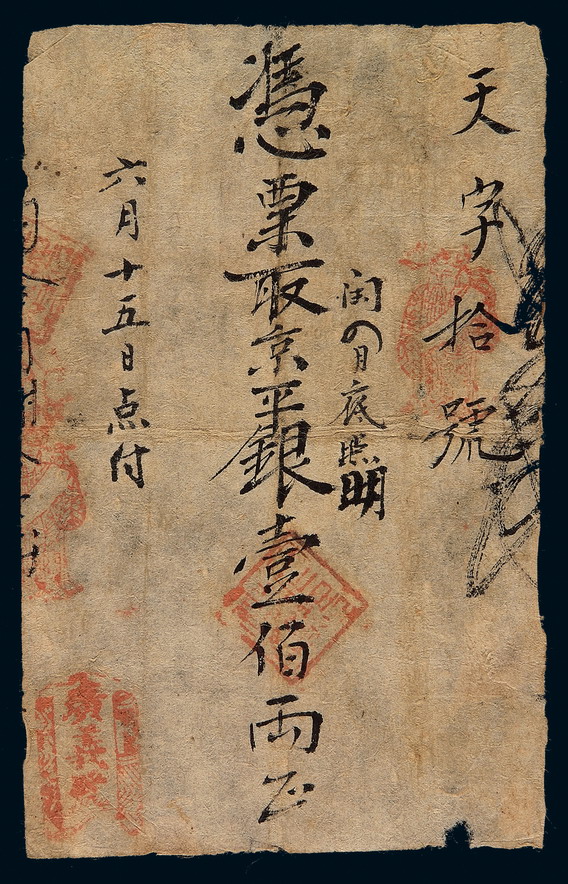 天字拾號
閏四月底照明
憑票取京平銀壹佰兩正
六月十五日点付
廣義